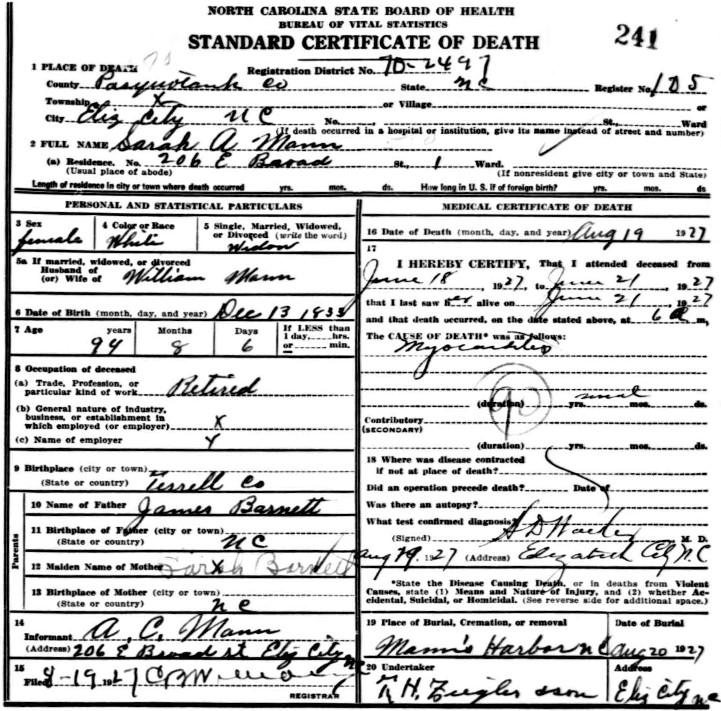 NORTH CAROLINA STATE BOARD OF HEALTH
BUREAU OF VITAL STATISTICS
STANDARD CERTIFICATE OF DEATH
241
1 PLACE OF DEATH
Registration District No. 70-2497
County Pasquotank Co State NC Register No. 105
Township X or Village or
City Eliz City NC No. St., Ward
(If death occurred in a hospital or institution, give its name instead of street and number)
2 FULL NAME Sarah A. Mann
(a) Residence. No. 206 E Broad St., 1 Ward.
(Usual place of abode) (If nonresident give city or town and State)
Length of residence in city or town where death occurred yrs. mos. ds. How long in U. S. if of foreign birth? yrs. mos. ds.
PERSONAL AND STATISTICAL PARTICULARS
3 Sex 4 Color or Race 5 Single, Married, Widowed, or Divorced (write the word)
female White Widow
5a If married, widowed, or divorced
Husband of
(or) Wife of William Mann
6 Date of Birth (month, day, and year) Dec 13 1833
7 Age years Months Days If LESS than 1 day, hrs. or min.
94 8 6
8 Occupation of deceased
(a) Trade, Profession, or particular kind of work Retired
(b) General nature of industry, business, or establishment in which employed (or employer) X
(c) Name of employer X
9 Birthplace (city or town)
(State or country) Terrell Co
Parents
10 Name of Father James Barnett
11 Birthplace of Father (city or town)
(State or country) NC
12 Maiden Name of Mother X Sarah Barnett
13 Birthplace of Mother (city or town)
(State or country) NC
14
Informant A. C. Mann
(Address) 206 E Broad st Eliz City NC
15
Filed 8-19 1927
REGISTRAR
MEDICAL CERTIFICATE OF DEATH
16 Date of Death (month, day, and year) Aug 19 1927
17
I HEREBY CERTIFY, That I attended deceased from
June 18, 1927, to June 21, 1927
that I last saw her alive on June 21, 1927
and that death occurred, on the date stated above, at 6 a m,
The CAUSE OF DEATH* was as follows:
Myocarditis
90
(duration) yrs. mos. ds.
Contributory
(SECONDARY)
(duration) yrs. mos. ds.
18 Where was disease contracted
if not at place of death?
Did an operation precede death? Date of
Was there an autopsy?
What test confirmed diagnosis?
(Signed) M. D.
Aug 19, 1927 (Address) Elizabeth City N.C
*State the Disease Causing Death, or in deaths from Violent
Causes, state (1) Means and Nature of Injury, and (2) whether Accidental, Suicidal, or Homicidal. (See reverse side for additional space.)
19 Place of Burial, Cremation, or removal Date of Burial
Mann's Harbor NC Aug 20 1927
20 Undertaker Address
H. Zeigler & Son Eliz City NC